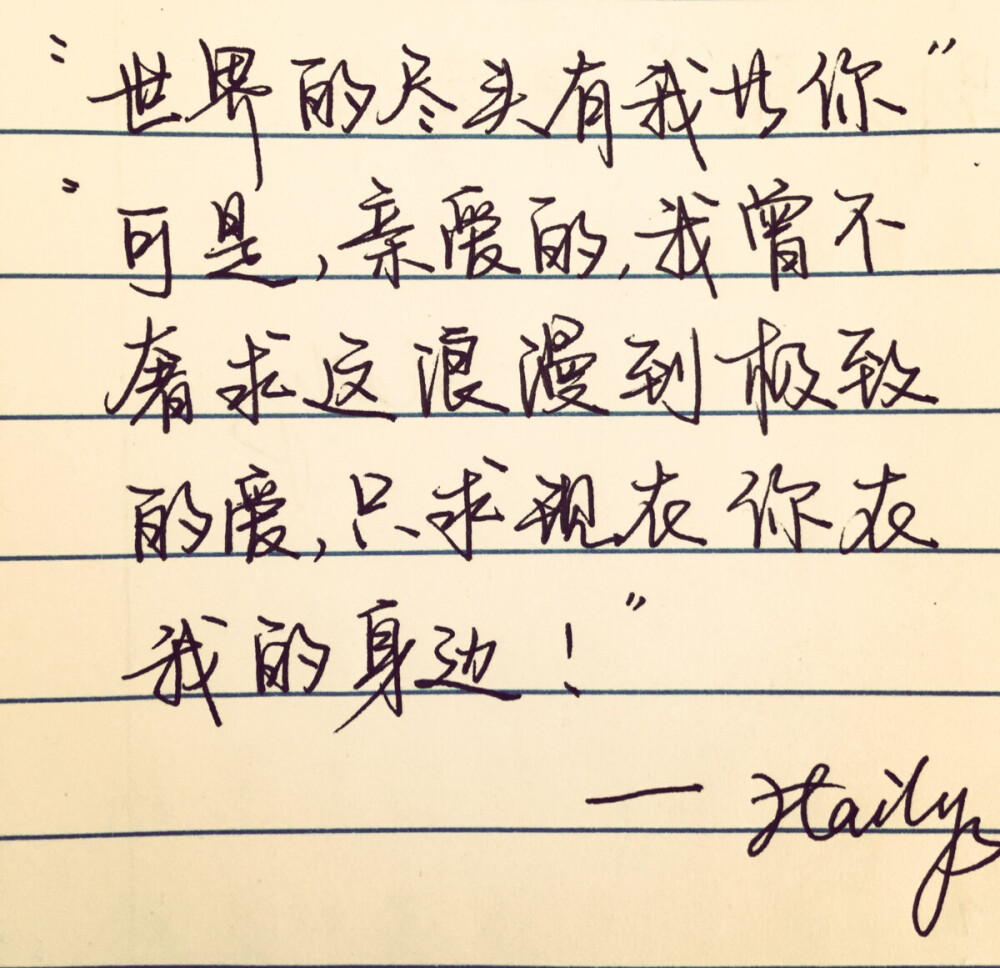 “世界的尽头有我共你”
“可是,亲爱的,我曾不
奢求这浪漫到极致
的爱,只求现在你在
我的身边!”
— Haily